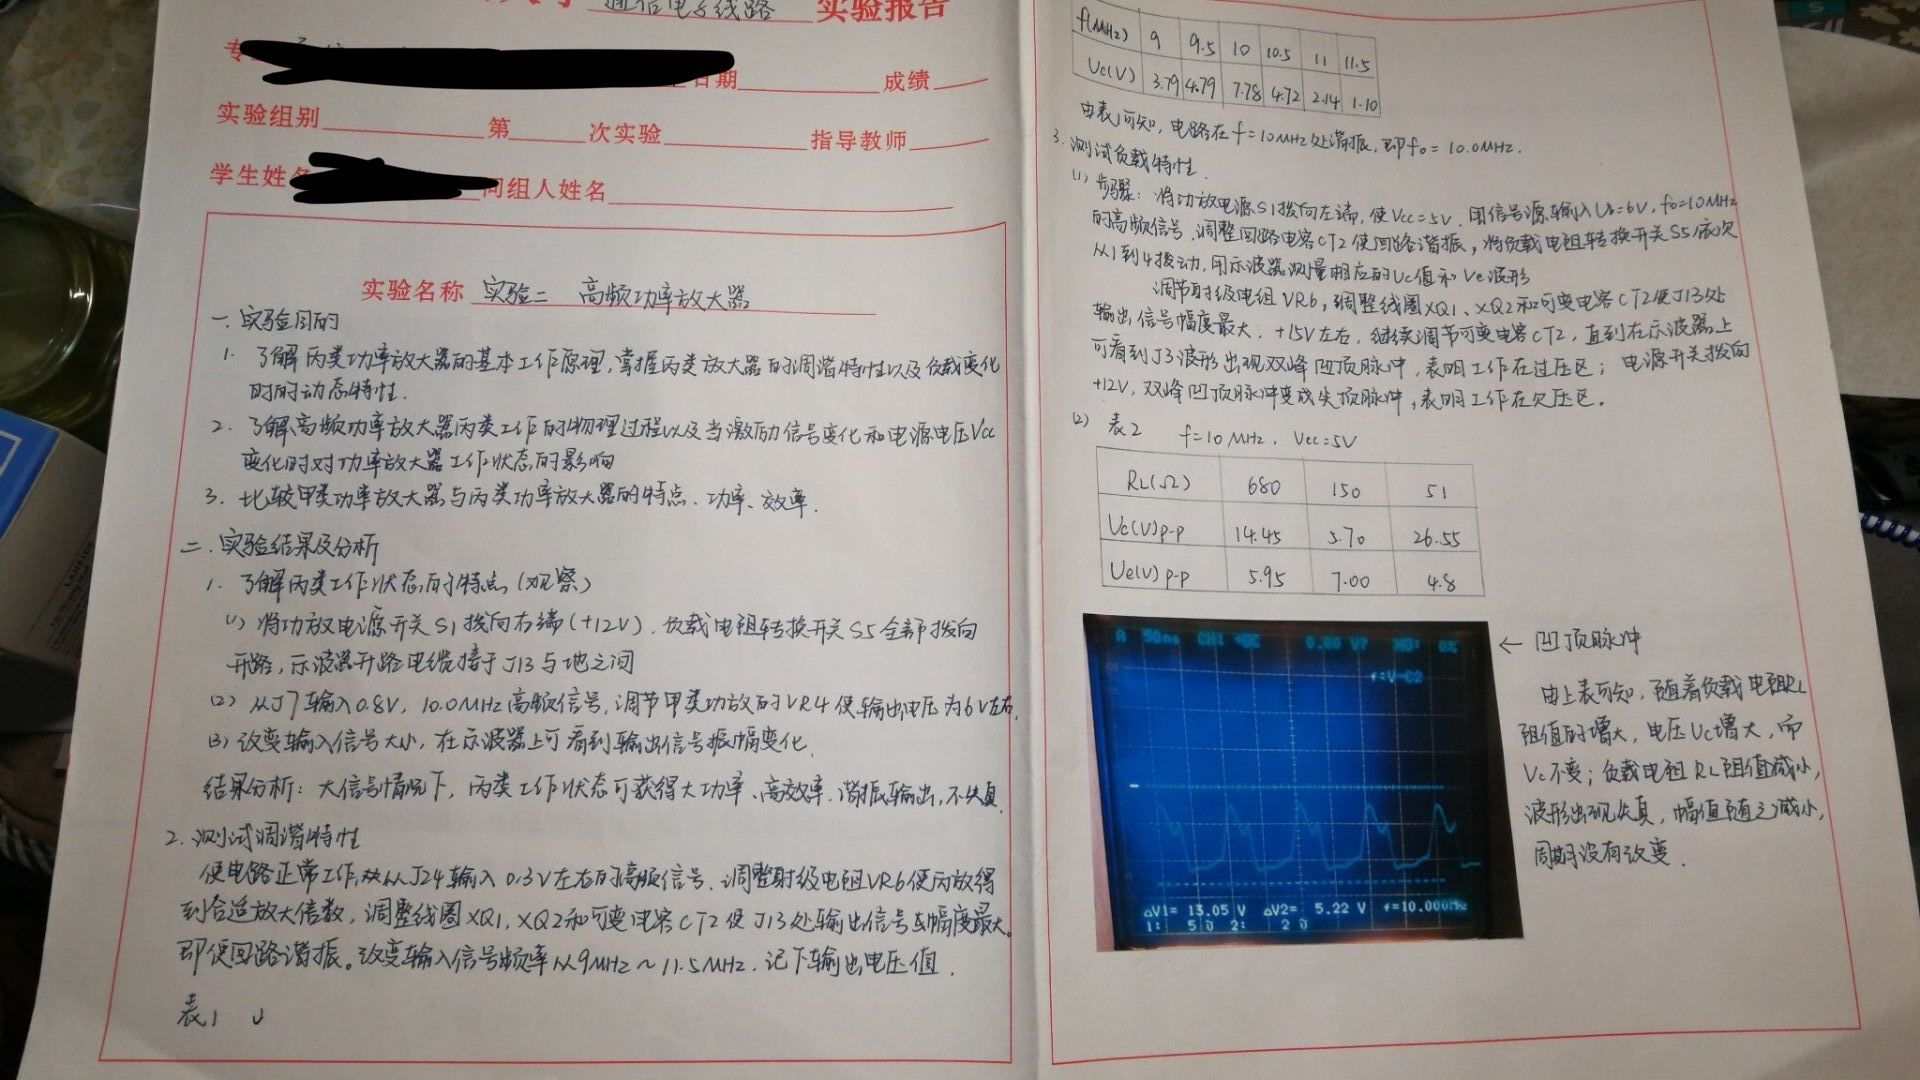 通信电子线路 实验报告
专
日期 成绩
实验组别 第 次实验 指导教师
学生姓名 同组人姓名
实验名称 实验二 高频功率放大器
一. 实验目的
1. 了解丙类功率放大器的基本工作原理,掌握丙类放大器的调谐特性以及负载变化
时的动态特性.
2. 了解高频功率放大器丙类工作的物理过程以及当激励信号变化和电源电压Vcc
变化时对功率放大器工作状态的影响
3. 比较甲类功率放大器与丙类功率放大器的特点、功率、效率.
二. 实验结果及分析
1. 了解丙类工作状态的特点(观察)
(1) 将功放电源开关S1拨向右端(+12V). 负载电阻转换开关S5全部拨向
开路, 示波器开路电缆接于J13与地之间
(2) 从J7输入0.8V, 10.0MHz高频信号, 调节甲类功放的VR4使输出电压为6V左右.
(3) 改变输入信号大小, 在示波器上可看到输出信号振幅变化.
结果分析: 大信号情况下, 丙类工作状态可获得大功率、高效率. 谐振输出, 不失真.
2. 测试调谐特性
使电路正常工作, 从J24输入0.3V左右的高频信号. 调整射级电阻VR6使丙放得
到合适放大倍数, 调整线圈XQ1、XQ2和可变电容CT2使J13处输出信号幅度最大。
即使回路谐振。改变输入信号频率从9MHz~11.5MHz. 记下输出电压值.
表1 ↓
f(MHz) 9 9.5 10 10.5 11 11.5
Uc(V) 3.79 4.79 7.78 4.72 2.14 1.10
由表1可知, 电路在f=10MHz处谐振, 即f0=10.0MHz.
3. 测试负载特性.
(1) 步骤: 将功放电源S1拨向左端, 使Vcc=5V. 用信号源输入Ub=6V, f0=10MHz
的高频信号, 调整回路电容CT2使回路谐振, 将负载电阻转换开关S5依次
从1到4拨动, 用示波器测量相应的Uc值和Ve波形
调节射级电组VR6, 调整线圈XQ1、XQ2和可变电容CT2使J13处
输出信号幅度最大, +15V左右, 继续调节可变电容CT2, 直到在示波器上
可看到J3波形出现双峰凹顶脉冲, 表明工作在过压区; 电源开关拨向
+12V, 双峰凹顶脉冲变成尖顶脉冲, 表明工作在欠压区.
(2) 表2 f=10MHz, Vcc=5V
RL(Ω) 680 150 51
Uc(V)p-p 14.45 5.70 26.55
Ue(V)p-p 5.95 7.00 4.8
A 50ns CH1 0.00 V? HO: 0%
f:V-C2
ΔV1= 13.05 V ΔV2= 5.22 V f=10.000MHz
← 凹顶脉冲
由上表可知, 随着负载电阻RL
阻值的增大, 电压Uc增大, 而
Vc不变; 负载电阻RL阻值减小,
波形出现失真, 幅值随之减小,
周期没有改变.